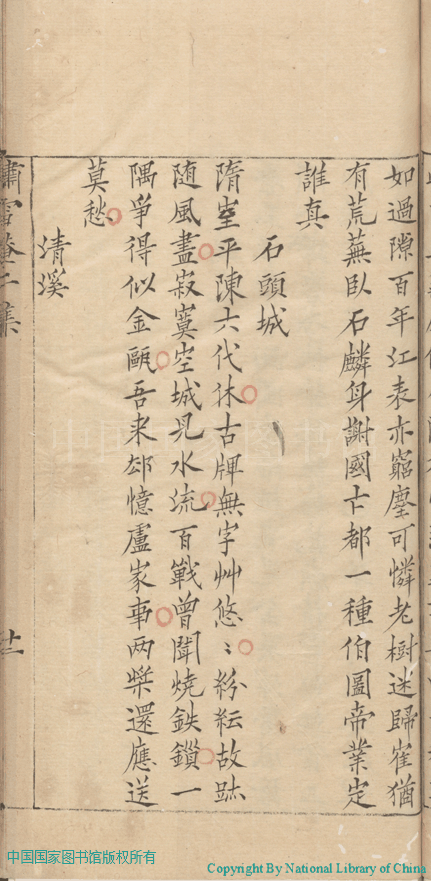 如過隙百年江表亦窮塵可憐老樹迷歸崔猶
有荒蕪臥石麟身謝國亡都一種伯圖帝業定
誰真
石頭城
隋室平陳六代休古碑無字艸悠〻紛紜故跡
随風盡寂寞空城見水流百戰曾聞燒鉄鎖一
隅爭得似金甌吾来却憶盧家事两槳還應送
莫愁
清溪
嘯雪菴二集
廿二
中国国家图书馆版权所有
Copyright By National Library of China